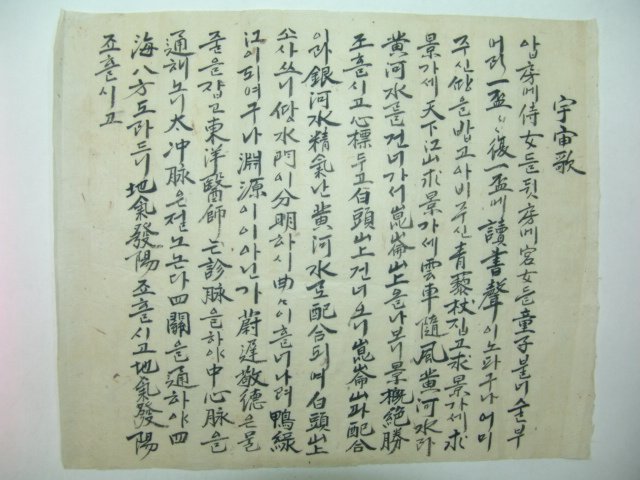 宇宙歌
압房에侍女들뒷房에宮女들童子불너술부
어라一盃〻復一盃에讀書聲이노라구나어미
주신을밥고아비주신靑藜杖집고求景가세求
景가세天下江山求景가세雲車隨風黃河水라
黃河水를건너가서崑崙山올나보니景槪絶勝
조흘시고心標두고白頭山上건너오니崑崙山과配合
이라銀河水精氣난黃河水로配合되여白頭山上
소사쓰니水門이分明하시曲〻이흘너나려鴨綠
江이되여구나淵源이이아닌가蔚遲敬德은물
줄을잡고東洋醫師는診脉을하야中心脉을
通해노니太冲脉은절노논다四關을通하야四
海八方도라드니地氣發陽죠흘시고地氣發陽
죠흘시고